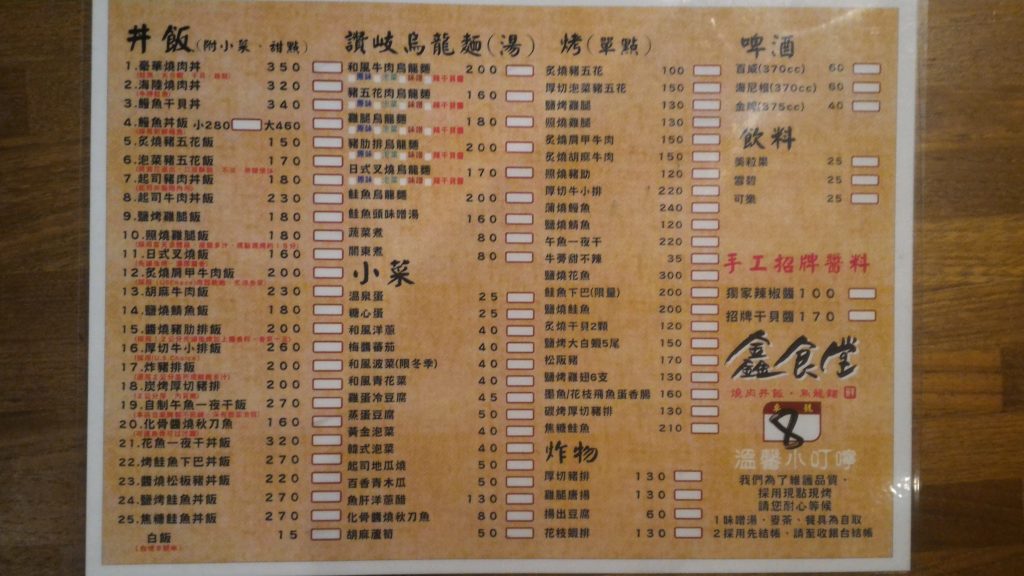 丼飯(附小菜．甜點)
1.豪華燒肉丼 350
2.海陸燒肉丼 320
3.鰻魚干貝丼 340
4.鰻魚丼飯 小280 大460
5.炙燒豬五花飯 150
6.泡菜豬五花飯 170
7.起司豬肉丼飯 180
8.起司牛肉丼飯 230
9.鹽烤雞腿飯 180
10.照燒雞腿飯 180
11.日式叉燒飯 160
12.炙燒肩甲牛肉飯 200
13.胡麻牛肉飯 230
14.鹽燒鯖魚飯 180
15.醬燒豬肋排飯 200
16.厚切牛小排飯 260
17.炸豬排飯 200
18.炭烤厚切豬排 200
19.自制午魚一夜干飯 270
20.化骨醬燒秋刀魚 160
21.花魚一夜干丼飯 320
22.烤鮭魚下巴丼飯 270
23.醬燒松板豬丼飯 220
24.鹽烤鮭魚丼飯 270
25.焦糖鮭魚丼飯 270
白飯 15
讚岐烏龍麵(湯)
和風牛肉烏龍麵 200
豬五花肉烏龍麵 160
雞腿烏龍麵 180
豬肋排烏龍麵 200
日式叉燒烏龍麵 170
鮭魚烏龍麵 200
鮭魚頭味噌湯 160
蔬菜煮 80
關東煮 80
小菜
溫泉蛋 25
糖心蛋 25
和風洋蔥 40
梅醬蕃茄 40
和風波菜(限冬季) 40
和風青花菜 40
雞蛋冷豆腐 45
蒸蛋豆腐 50
黃金泡菜 40
韓式泡菜 40
起司地瓜燒 50
百香青木瓜 50
魚肝洋蔥醋 130
化骨醬燒秋刀魚 80
胡麻蘆筍 50
烤(單點)
炙燒豬五花 100
厚切泡菜豬五花 150
鹽烤雞腿 130
照燒雞腿 130
炙燒肩甲牛肉 150
炙燒胡麻牛肉 150
照燒豬肋 120
厚切牛小排 220
蒲燒鰻魚 240
鹽燒鯖魚 120
午魚一夜干 220
牛蒡甜不辣 35
鹽燒花魚 300
鮭魚下巴(限量) 200
鹽燒鮭魚 200
炙燒干貝2顆 120
鹽烤大白蝦5尾 150
松阪豬 170
鹽烤雞翅6支 130
墨魚/花枝飛魚蛋香腸 160
碳烤厚切豬排 130
焦糖鮭魚 210
炸物
厚切豬排 130
雞腿唐揚 130
揚出豆腐 60
花枝蝦排 130
啤酒
百威(370cc) 60
海尼根(370cc) 60
金牌(375cc) 40
飲料
美粒果 25
雪碧 25
可樂 25
手工招牌醬料
獨家辣椒醬100
招牌干貝醬170
鑫食堂
燒肉丼飯．烏龍麵
桌號
8
溫馨小叮嚀
我們為了維護品質，
採用現點現烤
請您耐心等候
1味噌湯、麥茶、餐具為自取
2採用先結帳，請至收銀台結帳